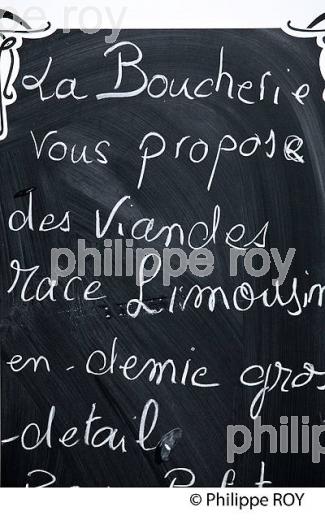 La Boucherie
vous propose
des viandes
race Limousin
en-demie gros
-detail
philippe roy
philippe roy
© Philippe ROY